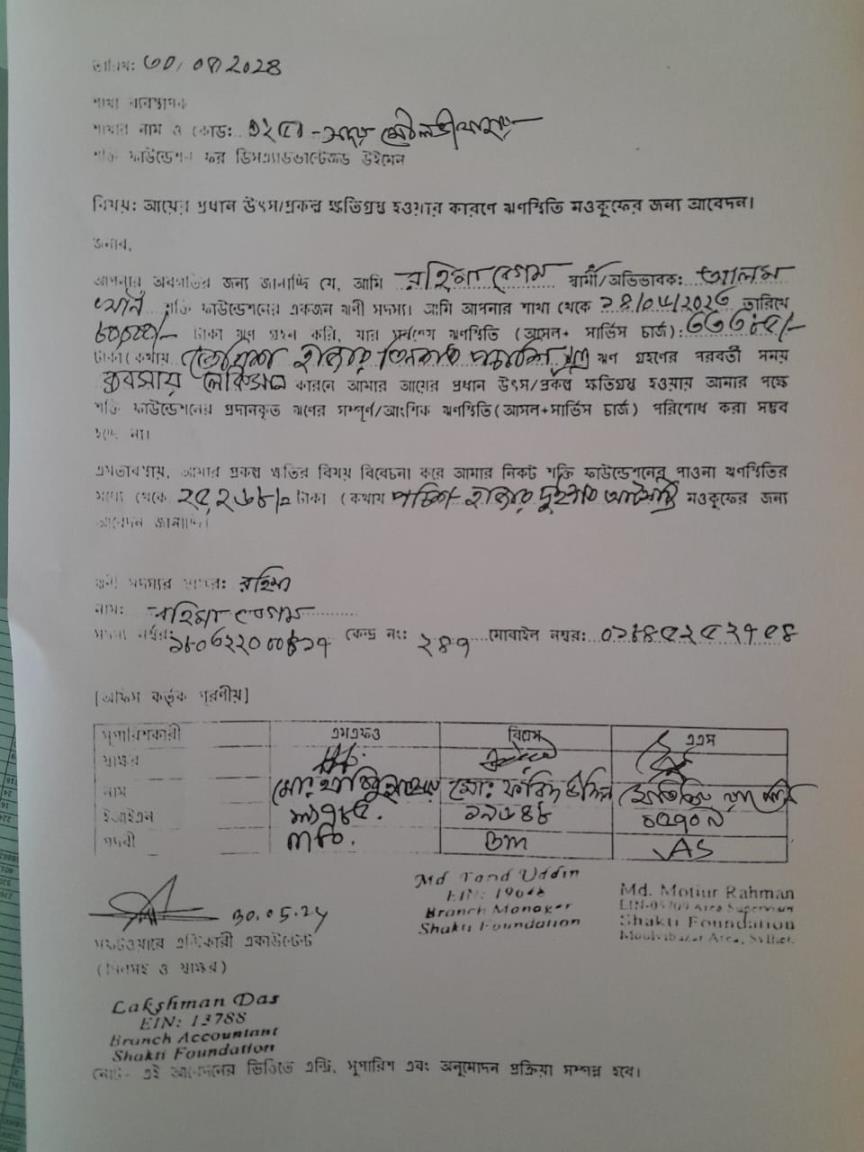 তারিখ: ৩০/০৪/২০২৪
শাখা ব্যবস্থাপক
শাখার নাম ও কোড: সদর মৌলভীবাজার
শক্তি ফাউন্ডেশন ফর ডিসএ্যাডভান্টেজড উইমেন
বিষয়: আয়ের প্রধান উৎস/প্রকল্প ক্ষতিগ্রস্থ হওয়ার কারণে ঋণস্থিতি মওকুফের জন্য আবেদন।
জনাব,
আপনার অবগতির জন্য জানাচ্ছি যে, আমি রহিমা বেগম স্বামী/অভিভাবক: আলম
খান শক্তি ফাউন্ডেশনের একজন ঋণী সদস্য। আমি আপনার শাখা থেকে তারিখে
৮০,০০০/- টাকা ঋণ গ্রহন করি, যার সর্বশেষ ঋণস্থিতি (আসল+ সার্ভিস চার্জ): ৩৩৩৮৫/-
টাকা (কথায় তেত্রিশ হাজার তিনশত পঁচাশি ঋণ গ্রহণের পরবর্তী সময়
ব্যবসায় লোকসান কারনে আমার আয়ের প্রধান উৎস/প্রকল্প ক্ষতিগ্রস্থ হওয়ায় আমার পক্ষে
শক্তি ফাউন্ডেশনের প্রদানকৃত ঋণের সম্পূর্ণ/আংশিক ঋণস্থিতি (আসল+সার্ভিস চার্জ) পরিশোধ করা সম্ভব
হচ্ছে না।
এমতাবস্থায়, আমার প্রকল্প ক্ষতির বিষয় বিবেচনা করে আমার নিকট শক্তি ফাউন্ডেশনের পাওনা ঋণস্থিতির
মধ্যে থেকে ২৫,২৬৮/= টাকা (কথায় পঁচিশ হাজার দুইশত আটষট্টি মওকুফের জন্য
আবেদন জানাচ্ছি।
ঋণী সদস্যের স্বাক্ষর: রহিমা
নাম: রহিমা বেগম
সদস্য নম্বর: কেন্দ্র নং: ২৪৭ মোবাইল নম্বর:
[অফিস কর্তৃক পূরণীয়]
সুপারিশকারী এমএফও বিএম এএস
স্বাক্ষর
নাম মোঃ মোঃ ফরিদ উদ্দিন
ইআইএন ১৯৬৪৪
পদবী BM AS
Md Farid Uddin
EIN: 19644
Branch Manager
Shakti Foundation
Md. Motiur Rahman
EIN-05709 Area Supervisor
Shakti Foundation
Moulvibazar Area, Sylhet.
30.05.24
সফটওয়ারে এন্ট্রিকারী একাউন্টেন্ট
(সিলসহ ও স্বাক্ষর)
Lakshman Das
EIN: 13788
Branch Accountant
Shakti Foundation
নোট:- এই আবেদনের ভিত্তিতে এন্ট্রি, সুপারিশ এবং অনুমোদন প্রক্রিয়া সম্পন্ন হবে।